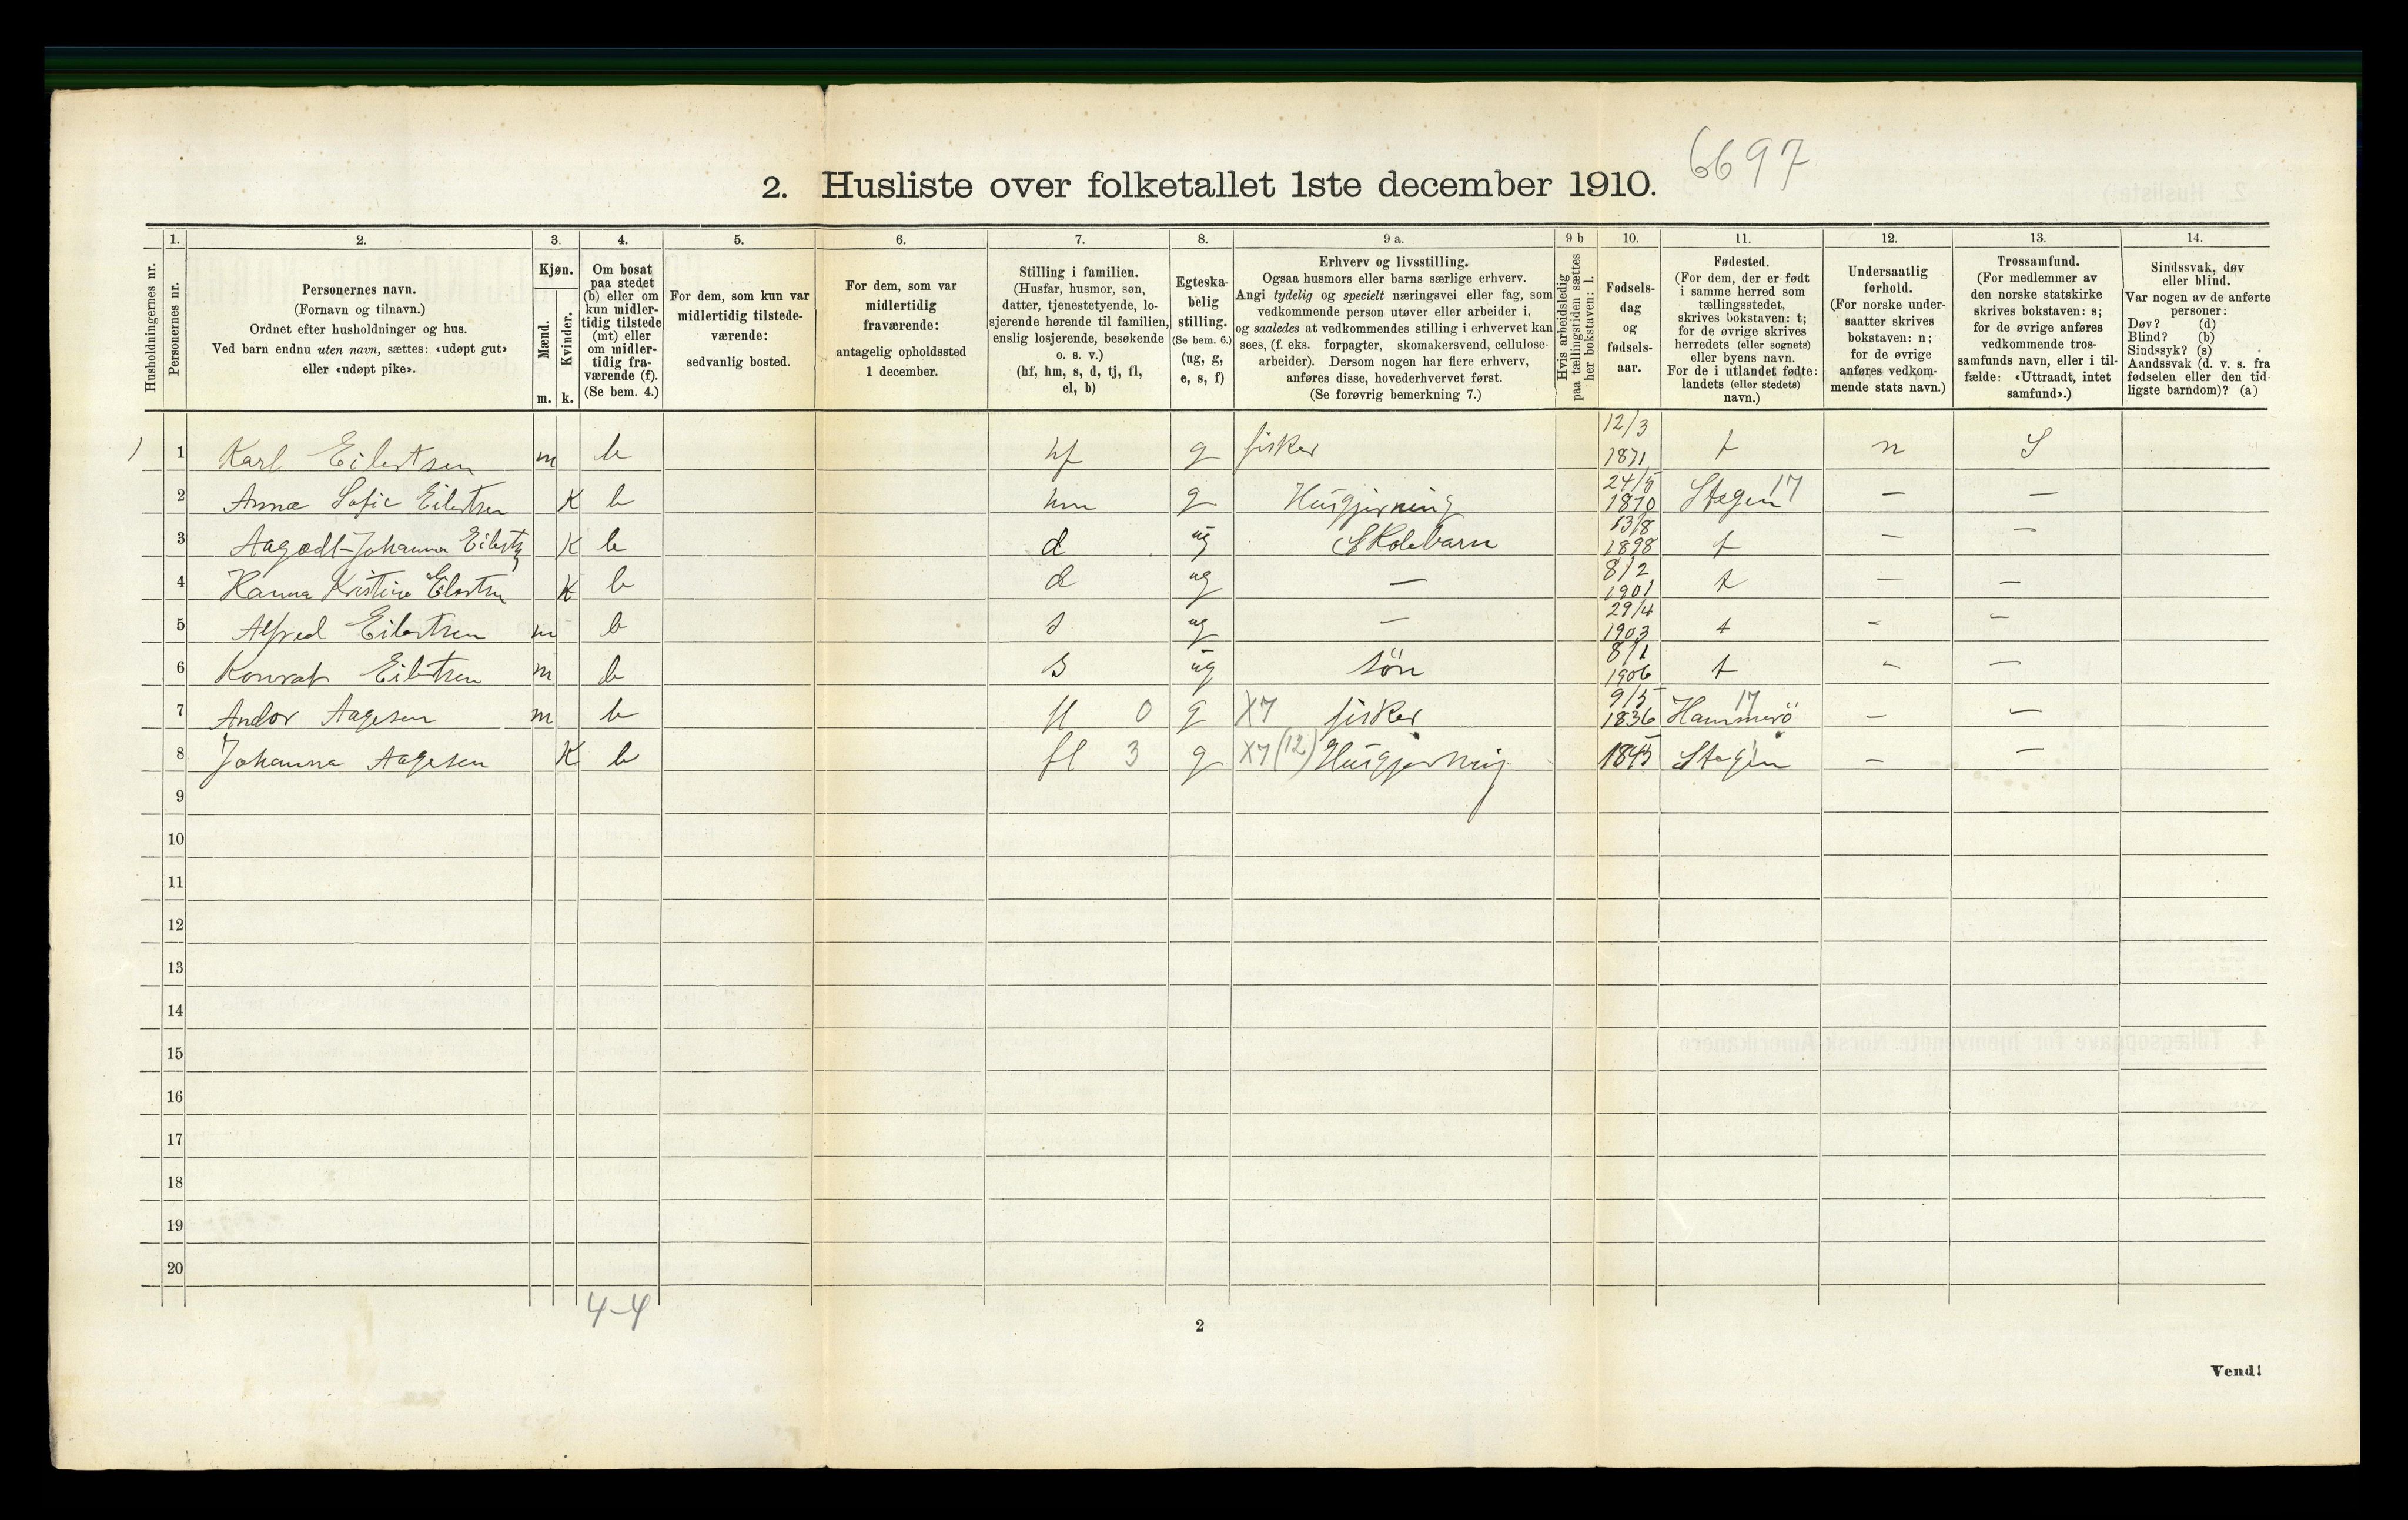 6697
2. Husliste over folketallet 1ste december 1910.
Husholdningernes nr.
1. Personernes nr.
2. Personernes navn.
(Fornavn og tilnavn.)
Ordnet efter husholdninger og hus.
Ved barn endnu uten navn, sættes: «udøpt gut»
eller «udøpt pike».
3. Kjøn.
Mænd. Kvinder.
m. k.
4. Om bosat
paa stedet
(b) eller om
kun midler-
tidig tilstede
(mt) eller
om midler-
tidig fra-
værende (f).
(Se bem. 4.)
5. For dem, som kun var
midlertidig tilstede-
værende:
sedvanlig bosted.
6. For dem, som var
midlertidig
fraværende:
antagelig opholdssted
1 december.
7. Stilling i familien.
(Husfar, husmor, søn,
datter, tjenestetyende, lo-
sjerende hørende til familien,
enslig losjerende, besøkende
o. s. v.)
(hf, hm, s, d, tj, fl,
el, b)
8. Egteska-
belig
stilling.
(Se bem. 6.)
(ug, g,
e, s, f)
9 a. Erhverv og livsstilling.
Ogsaa husmors eller barns særlige erhverv.
Angi tydelig og specielt næringsvei eller fag, som
vedkommende person utøver eller arbeider i,
og saaledes at vedkommendes stilling i erhvervet kan
sees, (f. eks. forpagter, skomakersvend, cellulose-
arbeider). Dersom nogen har flere erhverv,
anføres disse, hovederhvervet først.
(Se forøvrig bemerkning 7.)
9 b Hvis arbeidsledig
paa tællingstiden sættes
her bokstaven: l.
10. Fødsels-
dag
og
fødsels-
aar.
11. Fødested.
(For dem, der er født
i samme herred som
tællingsstedet,
skrives bokstaven: t;
for de øvrige skrives
herredets (eller sognets)
eller byens navn.
For de i utlandet fødte:
landets (eller stedets)
navn.)
12. Undersaatlig
forhold.
(For norske under-
saatter skrives
bokstaven: n;
for de øvrige
anføres vedkom-
mende stats navn.)
13. Trossamfund.
(For medlemmer av
den norske statskirke
skrives bokstaven: s;
for de øvrige anføres
vedkommende tros-
samfunds navn, eller i til-
fælde: «Uttraadt, intet
samfund».)
14. Sindssvak, døv
eller blind.
Var nogen av de anførte
personer:
Døv? (d)
Blind? (b)
Sindssyk? (s)
Aandssvak (d. v. s. fra
fødselen eller den tid-
ligste barndom)? (a)
1) 1 Karl Eilertsen m b hf g fisker 12/3 1871 t n S
2 Anna Sofie Eilertsen K b hm g Husgjerning 24/5 1870 Stegen 17 — —
3 Aagodt-Johanna Eilerts K b d ug Skolebarn 13/8 1898 t — —
4 Hanna Kristine Eilertsen K b d ug — 8/2 1901 t — —
5 Alfred Eilertsen m b s ug — 29/4 1903 t — —
6 Konrat Eilertsen m b s ug sön 8/1 1906 t — —
7 Andor Aagesen m b fl 0 g X7 fisker 9/5 1836 Hammerö 17 — —
8 Johanna Aagesen K b fl 3 g X7 (12) Husgjerning 1845 Stegen — —
9
10
11
12
13
14
15
16
17
18
19
20
4-4
2
Vend!